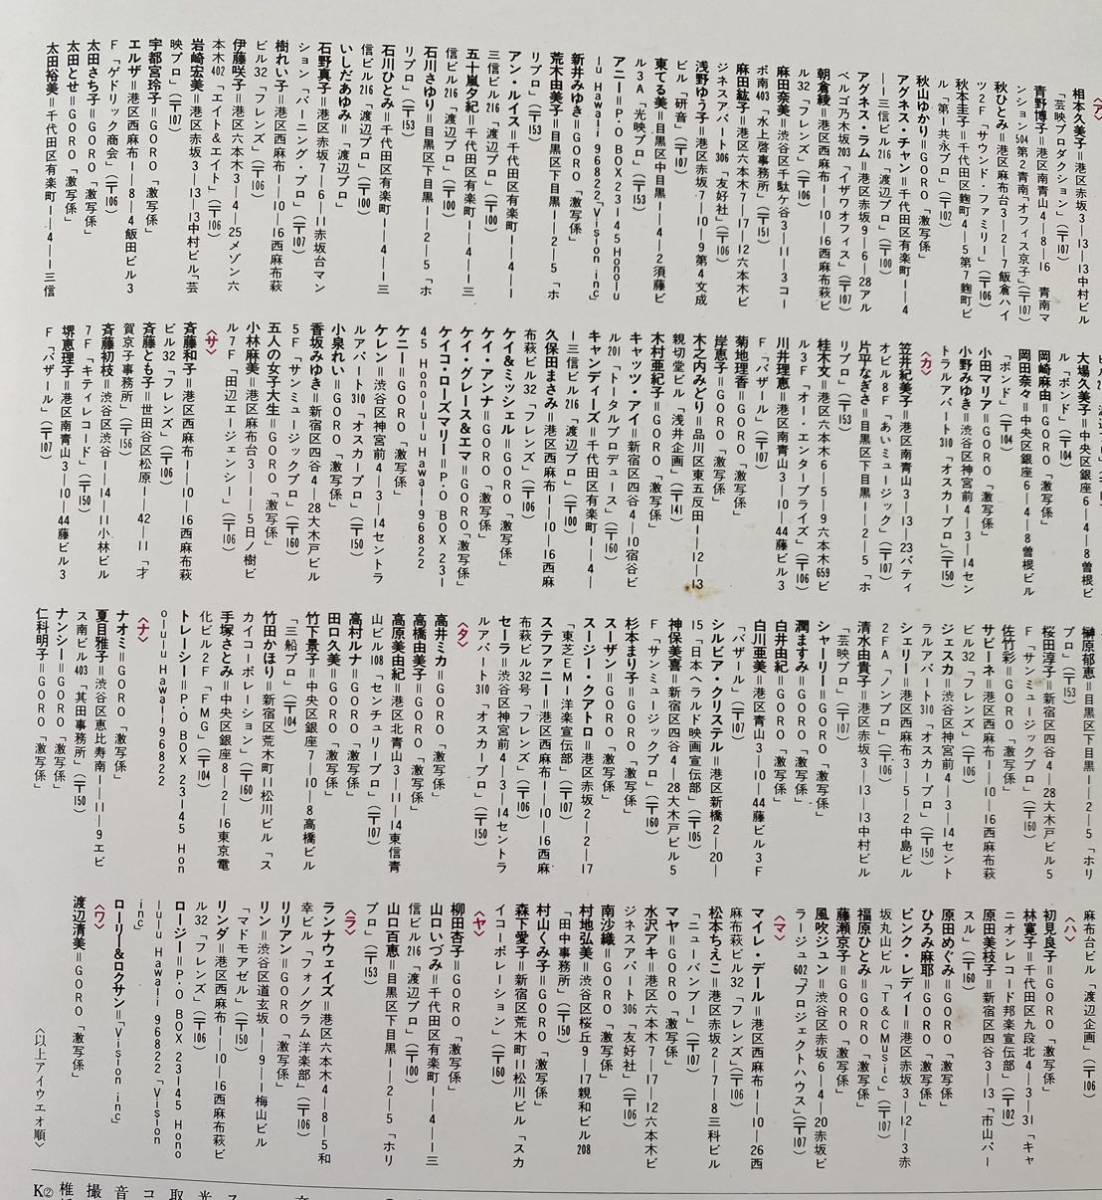 〈ア〉
相本久美子＝港区赤坂3―13―13中村ビル
「芸映プロダクション」（〒107）
青野博子＝港区南青山4―8―16 青南マ
ンション504第2青南「オフィス京子」（〒107）
秋ひとみ＝港区麻布台3―2―7飯倉ハイ
ツ2F「サウンド・ファミリー」（〒106）
秋本圭子＝千代田区麹町4―5第7麹町ビ
ル「第一共永プロ」（〒102）
秋山ゆかり＝GORO「激写係」
アグネス・チャン＝千代田区有楽町1―4
―1三信ビル216「渡辺プロ」（〒100）
アグネス・ラム＝港区赤坂9―6―28アル
ベルゴ乃木坂203「イザワオフィス」（〒107）
朝倉綾＝港区西麻布1―10―16西麻布萩ビ
ル32「フレンズ」（〒106）
麻田奈美＝渋谷区千駄ケ谷3―11―3コー
ポ南403「水上啓事務所」（〒151）
麻田紘子＝港区六本木7―17―12六本木ビ
ジネスアパート306「友好社」（〒106）
浅野ゆう子＝港区赤坂7―10―9第4文成
ビル「研音」（〒107）
東てる美＝目黒区中目黒1―4―2須藤ビ
ル3A「光映プロ」（〒153）
アニー＝P・O BOX 23145 Honolu
lu Hawaii 96822「Vision inc」
新井みゆき＝GORO「激写係」
荒木由美子＝目黒区下目黒1―2―5「ホ
リプロ」（〒153）
アン・ルイス＝千代田区有楽町1―4―1
三信ビル216「渡辺プロ」（〒100）
五十嵐夕紀＝千代田区有楽町1―4―1三
信ビル216「渡辺プロ」（〒100）
石川さゆり＝目黒区下目黒1―2―5「ホ
リプロ」（〒153）
石川ひとみ＝千代田区有楽町1―4―1三
信ビル216「渡辺プロ」（〒100）
いしだあゆみ＝「渡辺プロ」
石野真子＝港区赤坂7―6―11赤坂台マン
ション「バーニング・プロ」（〒107）
樹れい子＝港区西麻布1―10―16西麻布萩
ビル32「フレンズ」（〒106）
伊藤咲子＝港区六本木3―4―25メゾン六
本木402「エイト&エイト」（〒106）
岩崎宏美＝港区赤坂3―13―13中村ビル「芸
映プロ」（〒107）
宇都宮玲子＝GORO「激写係」
エルザ＝港区西麻布1―8―4飯田ビル3
F「ゲドリック商会」（〒106）
太田さち子＝GORO「激写係」
太田とせ＝GORO「激写係」
太田裕美＝千代田区有楽町1―4―1三信
大場久美子＝中央区銀座6―4―8曽根ビ
ル「ボンド」（〒104）
岡崎麻由＝GORO「激写係」
岡田奈々＝中央区銀座6―4―8曽根ビル
「ボンド」（〒104）
小田マリア＝GORO「激写係」
小野みゆき＝渋谷区神宮前4―3―14セン
トラルアパート310「オスカープロ」（〒150）
〈カ〉
笠井紀美子＝港区南青山3―13―23パティ
オビル8F「あいミュージック」（〒107）
片平なぎさ＝目黒区下目黒1―2―5「ホ
リプロ」（〒153）
桂木文＝港区六本木6―5―9六本木659ビ
ル3F「オー・エンタープライズ」（〒106）
川井理恵＝港区南青山3―10―44藤ビル3
F「バザール」（〒107）
菊地理香＝GORO「激写係」
岸恵子＝GORO「激写係」
木之内みどり＝品川区東五反田1―12―13
親切堂ビル「浅井企画」（〒141）
木村亜紀子＝GORO「激写係」
キャッツ・アイ＝新宿区四谷4―10宿谷ビ
ル201「トータルプロデュース」（〒160）
キャンディーズ＝千代田区有楽町1―4―
1三信ビル216「渡辺プロ」（〒100）
久保田まさみ＝港区西麻布1―10―16西麻
布萩ビル32「フレンズ」（〒106）
ケイ&ミッシェル＝GORO「激写係」
ケイ・アンナ＝GORO「激写係」
ケイ・グレース&エマ＝GORO「激写係」
ケイコ・ローズマリー＝P・O BOX 231
45 Honolulu Hawaii 96822
ケニー＝GORO「激写係」
ケレン＝渋谷区神宮前4―3―14セントラ
ルアパート310「オスカープロ」（〒150）
小泉れい＝GORO「激写係」
香坂みゆき＝新宿区四谷4―28大木戸ビル
5F「サンミュージックプロ」（〒160）
五人の女子大生＝GORO「激写係」
小林麻美＝港区麻布台3―1―5日ノ樹ビ
ル7F「田辺エージェンシー」（〒106）
〈サ〉
斎藤和子＝港区西麻布1―10―16西麻布萩
ビル32「フレンズ」（〒106）
斉藤とも子＝世田谷区松原1―42―11「才
賀京子事務所」（〒156）
斉藤初枝＝渋谷区渋谷1―14―11小林ビル
7F「キティレコード」（〒150）
堺恵理子＝港区南青山3―10―44藤ビル3
F「バザール」（〒107）
榊原郁恵＝目黒区下目黒1―2―5「ホリ
プロ」（〒153）
桜田淳子＝新宿区四谷4―28大木戸ビル5
F「サンミュージックプロ」（〒160）
佐竹彩＝GORO「激写係」
サビーネ＝港区西麻布1―10―16西麻布萩
ビル32「フレンズ」（〒106）
ジェスカ＝渋谷区神宮前4―3―14セント
ラルアパート310「オスカープロ」（〒150）
シェリー＝港区西麻布3―5―2中島ビル
2FA「ノンプロ」（〒106）
清水由貴子＝港区赤坂3―13―13中村ビル
「芸映プロ」（〒107）
シャーリー＝GORO「激写係」
潤ますみ＝GORO「激写係」
白井由紀＝GORO「激写係」
白川亜美＝港区青山3―10―44藤ビル3F
「バザール」（〒107）
シルビア・クリステル＝港区新橋2―20―
15「日本ヘラルド映画宣伝部」（〒105）
神保美喜＝新宿区四谷4―28大木戸ビル5
F「サンミュージックプロ」（〒160）
杉本まり子＝GORO「激写係」
スーザン＝GORO「激写係」
スージー・クアトロ＝港区赤坂2―2―17
「東芝EMI洋楽宣伝部」（〒107）
ステファニー＝港区西麻布1―10―16西麻
布萩ビル32号「フレンズ」（〒106）
セーラ＝渋谷区神宮前4―3―14セントラ
ルアパート310「オスカープロ」（〒150）
〈タ〉
高井ミカ＝GORO「激写係」
高橋由美子＝GORO「激写係」
高原美由紀＝港区北青山3―11―14東信青
山ビル108「センチュリープロ」（〒107）
高村ルナ＝GORO「激写係」
田口久美＝GORO「激写係」
竹下景子＝中央区銀座7―10―8高橋ビル
「三船プロ」（〒104）
竹田かほり＝新宿区荒木町11松川ビル「ス
カイコーポレーション」（〒160）
手塚さとみ＝中央区銀座8―2―16東京電
化ビル2F「FMG」（〒104）
トレーシー＝P・O BOX 23145 Hon
olulu Hawaii 96822
〈ナ〉
ナオミ＝GORO「激写係」
夏目雅子＝渋谷区恵比寿南1―11―9エビ
ス南ビル403「其田事務所」（〒150）
ナンシー＝GORO「激写係」
仁科明子＝GORO「激写係」
麻布台ビル「渡辺企画」（〒106）
〈ハ〉
初見良子＝GORO「激写係」
林寛子＝千代田区九段北4―3―31「キャ
ニオンレコード邦楽宣伝部」（〒102）
原田美枝子＝新宿区四谷3―13「市山パー
スル」（〒160）
原田めぐみ＝GORO「激写係」
ひろみ麻耶＝GORO「激写係」
ピンク・レディー＝港区赤坂3―12―3赤
坂丸山ビル「T&C Music」（〒107）
福原ひとみ＝GORO「激写係」
藤瀬京子＝GORO「激写係」
風吹ジュン＝渋谷区赤坂6―4―20赤坂ビ
ラージュ602「プロジェクトハウス」（〒107）
〈マ〉
マイレ・デール＝港区西麻布1―10―26西
麻布萩ビル32「フレンズ」（〒106）
松本ちえこ＝港区赤坂2―7―8三科ビル
「ニューバンブー」（〒107）
マヤ＝GORO「激写係」
水沢アキ＝港区六本木7―17―12六本木ビ
ジネスアパート306「友好社」（〒106）
南沙織＝GORO「激写係」
村地弘美＝渋谷区桜丘9―17親和ビル208
「田中事務所」（〒150）
村山くみ子＝GORO「激写係」
森下愛子＝新宿区荒木町11松川ビル「スカ
イコーポレーション」（〒160）
〈ヤ〉
柳田杏子＝GORO「激写係」
山口いづみ＝千代田区有楽町1―4―1三
信ビル216「渡辺プロ」（〒100）
山口百恵＝目黒区下目黒1―2―5「ホリ
プロ」（〒153）
〈ラ〉
ランナウェイズ＝港区六本木4―8―5和
幸ビル「フォノグラム洋楽部」（〒106）
リリアン＝GORO「激写係」
リン＝渋谷区道玄坂1―9―1梅山ビル
「マドモアゼル」（〒150）
リンダ＝港区西麻布1―10―16西麻布萩ビ
ル32「フレンズ」（〒106）
ロージー＝P・O BOX 23145 Hono
lulu Hawaii 96822「Vision
inc」
ローリー&ロクサン＝「Vision inc」
〈ワ〉
渡辺清美＝GORO「激写係」
〈以上アイウエオ順〉